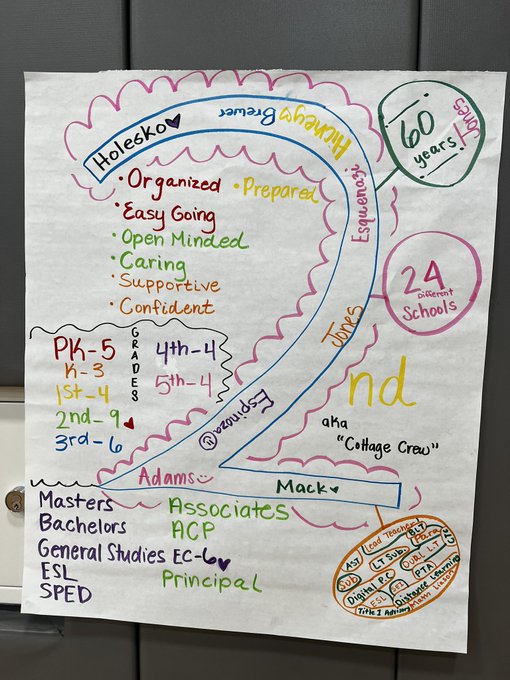 Holesko
Brewer
Hickey
Esquenazi
Jones
Espinoza
Adams
Mack
60
years
Jones
24
Different
Schools
• Organized
• Prepared
• Easy Going
• Open Minded
• Caring
• Supportive
• Confident
GRADES
PK-5
K-3
1st-4
2nd-9
3rd-6
4th-4
5th-4
nd
aka
"Cottage Crew"
Masters
Bachelors
General Studies EC-6
ESL
SPED
Associates
ACP
Principal
Lead Teacher
BLT
AST
LT Sub
Para
Sub
DUAL L.T
Digital P.C
PTA
ESL
Distance Learning
Title I Advisory